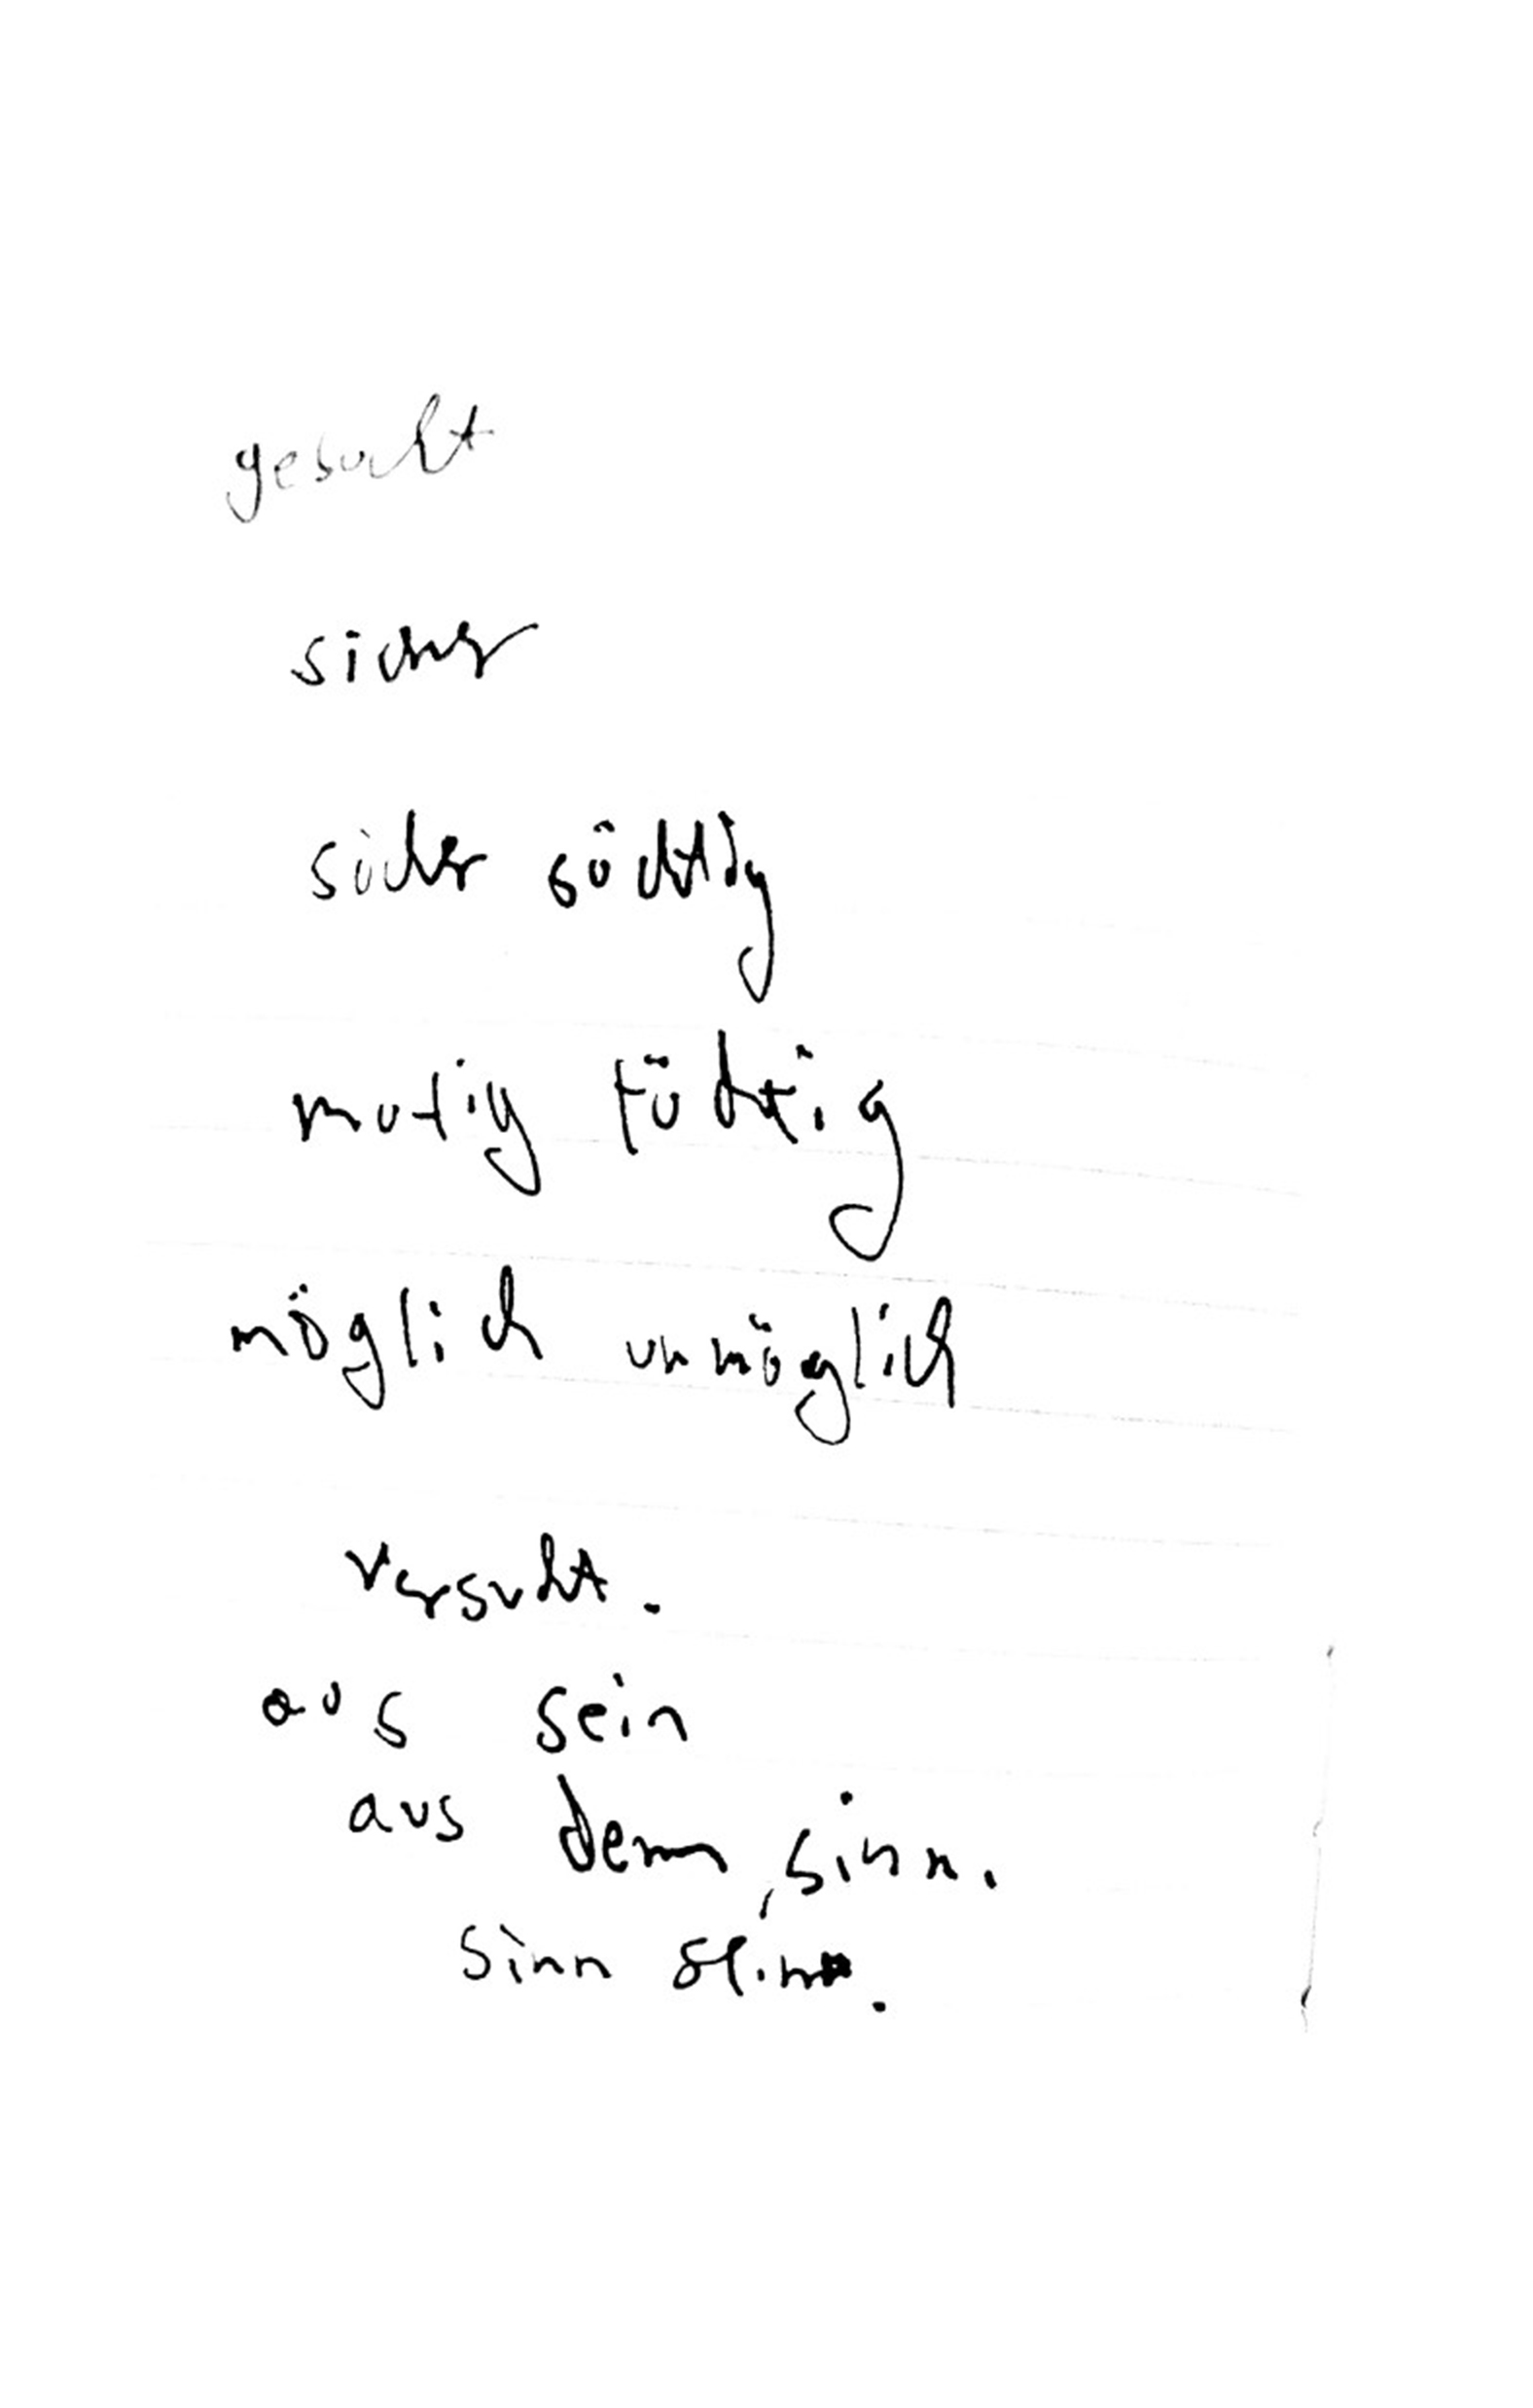 gesucht
sicher
sicher süchtig
mutig tüchtig
möglich unmöglich
versucht.
aus sein
aus dem, sinn.
sinn sein.